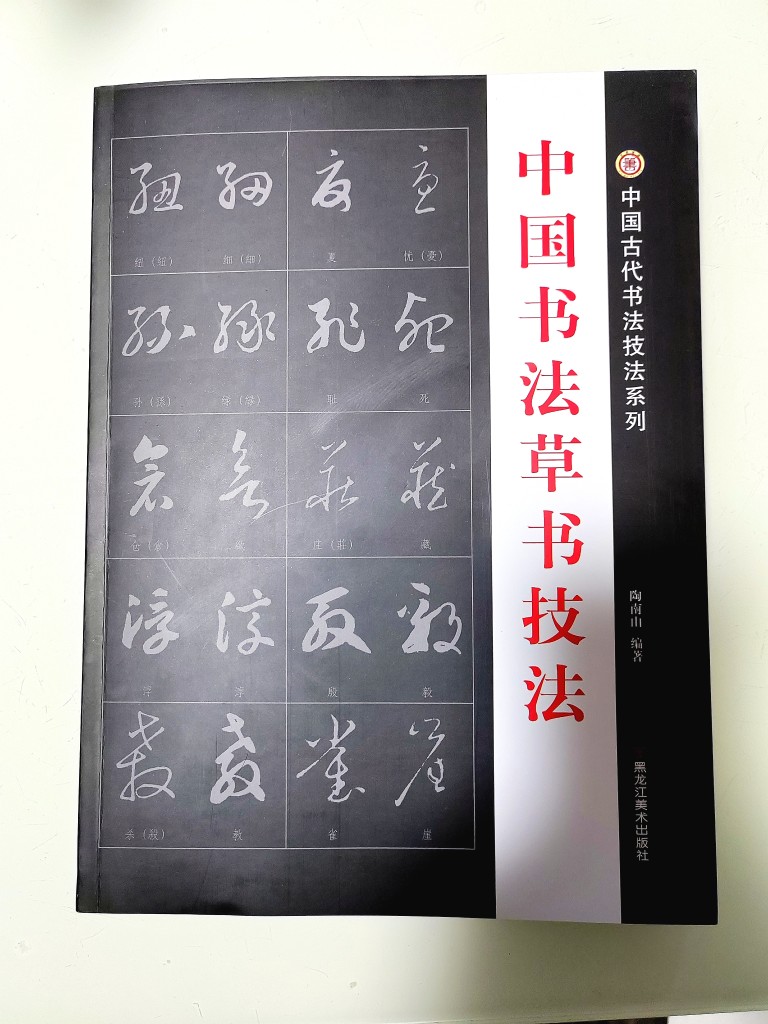 中国书法草书技法
中国古代书法技法系列
陶南山 编著
黑龙江美术出版社
纽（紐） 细（細） 夏 忧（憂）
孙（孫） 缘（緣） 耻 死
庄（莊） 藏
浮 淳 殷 毅
杀（殺） 教 雀 崖